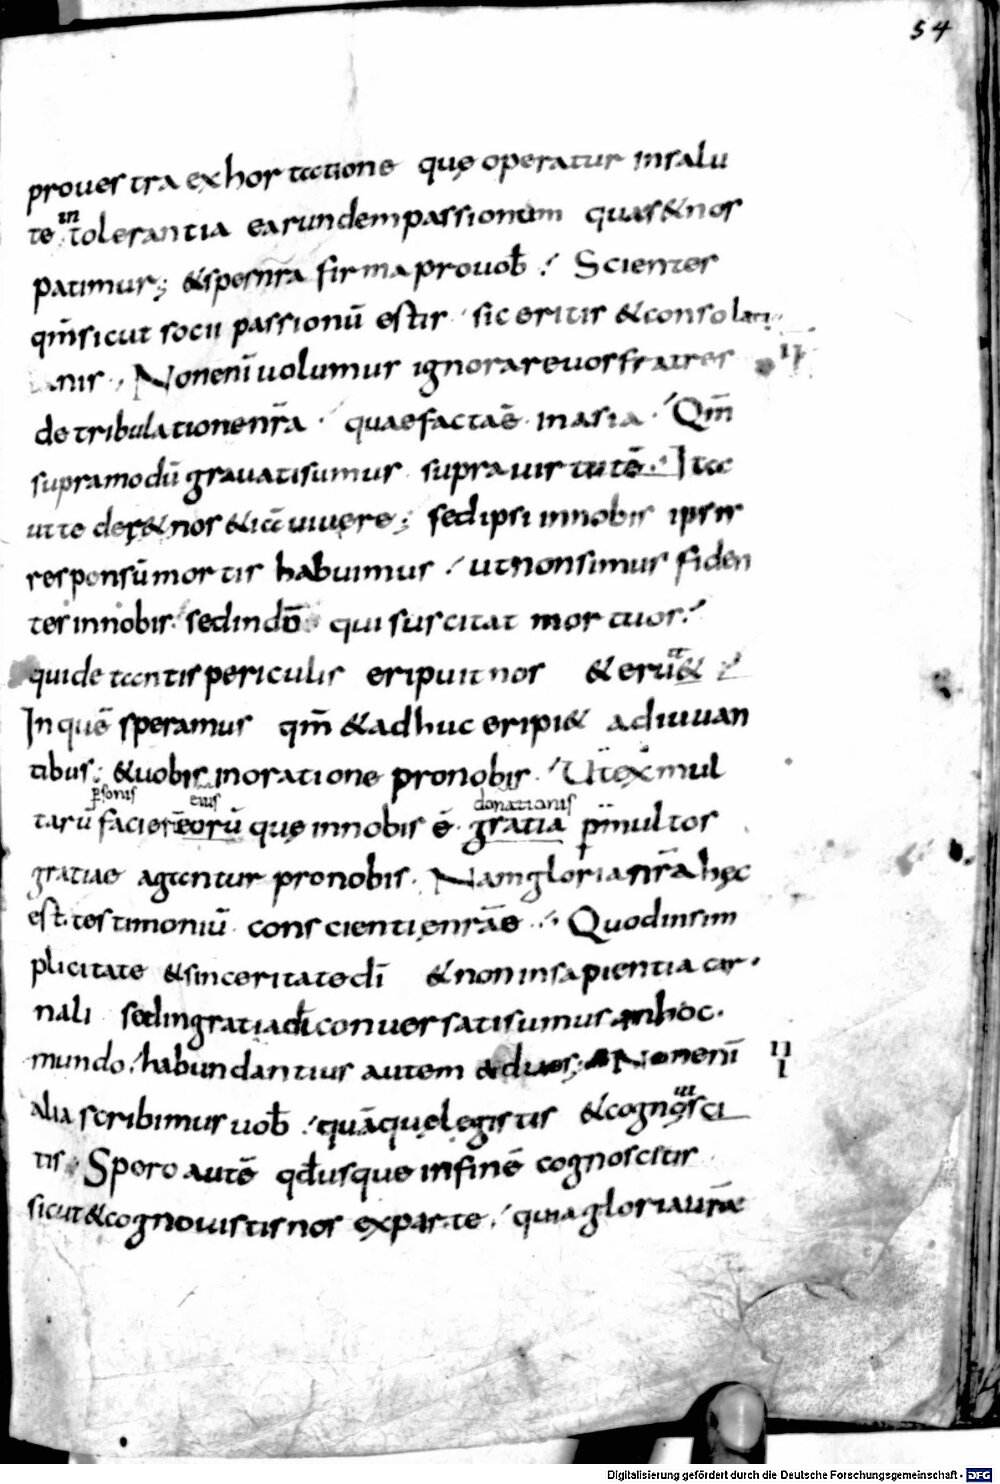 54
pro uestra exhortatione quę operatur in salu
te in tolerantia earundem passionum quas & nos
patimur; & spes nr̄a firma pro uob̄ Scientes
qm̄ sicut socii passionū estis sic eritis & consolati
nis. Non eni̅ uolumus ignorare uos fratres
de tribulatione nr̄a quae facta ē in asia. Qm̄
supra modū grauati sumus supra uirtutē. Ita
ut tederet nos &iā uiuere; sed ipsi in nobis ipsis
responsū mortis habuimus ut non simus fiden
tes in nobis. sed in dō qui suscitat mortuos.
qui de tantis periculis eripuit nos & eru&
In quē speramus qm̄ & adhuc eripi& adiuuan
tibus. & uobis in oratione pro nobis. Ut ex mul
psonis eius donationis
tarū facierē eorū quę in nobis ē gratia p multos
gratiae agantur pro nobis. Nam gloria nr̄a hęc
est. testimoniū conscientię nr̄ae. Quod in sim
plicitate & sinceritate dī & non in sapientia car
nali sed in gratia dī conuersati sumus in hoc
mundo. habundantius autem ad uos; Non enī
II I
alia scribimus uob̄ quā quę legistis & cognosci
tis. Spero autē qd̄ usque in finē cognoscetis
sicut & cognouistis nos ex parte. quia gloria ur̄a
Digitalisierung gefördert durch die Deutsche Forschungsgemeinschaft - DFG